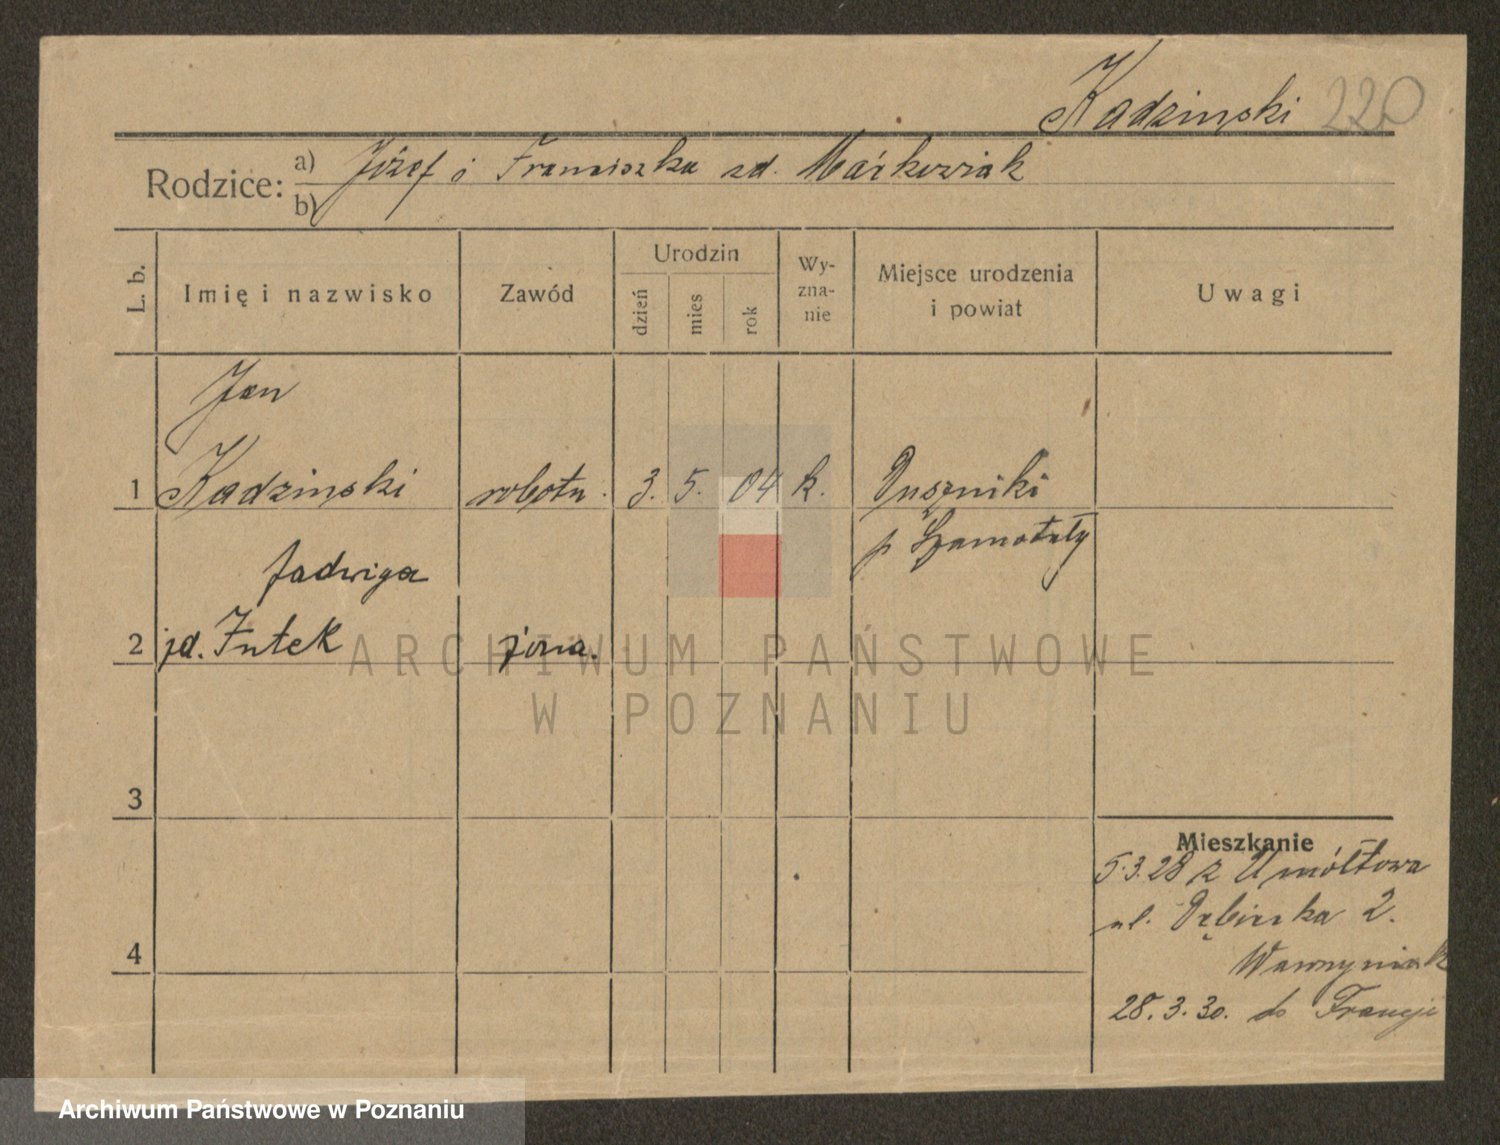 Kadzinski 220
Rodzice: a) Józef i Franciszka zd. Markowiak
b)
L. b.
Imię i nazwisko
Zawód
Urodzin
dzień
mies
rok
Wy-
zna-
nie
Miejsce urodzenia
i powiat
Uwagi
Jan
1 Kadzinski robotn. 3. 5. 04 k. Duszniki
p Szamotuły
Jadwiga
2 zd. Futek żona.
3
4
Mieszkanie
5.3.28 z Umółtowa
ul. Dębieńska 2.
Wawrzyniak
28.3.30. do Francji
ARCHIWUM PAŃSTWOWE
W POZNANIU
Archiwum Państwowe w Poznaniu